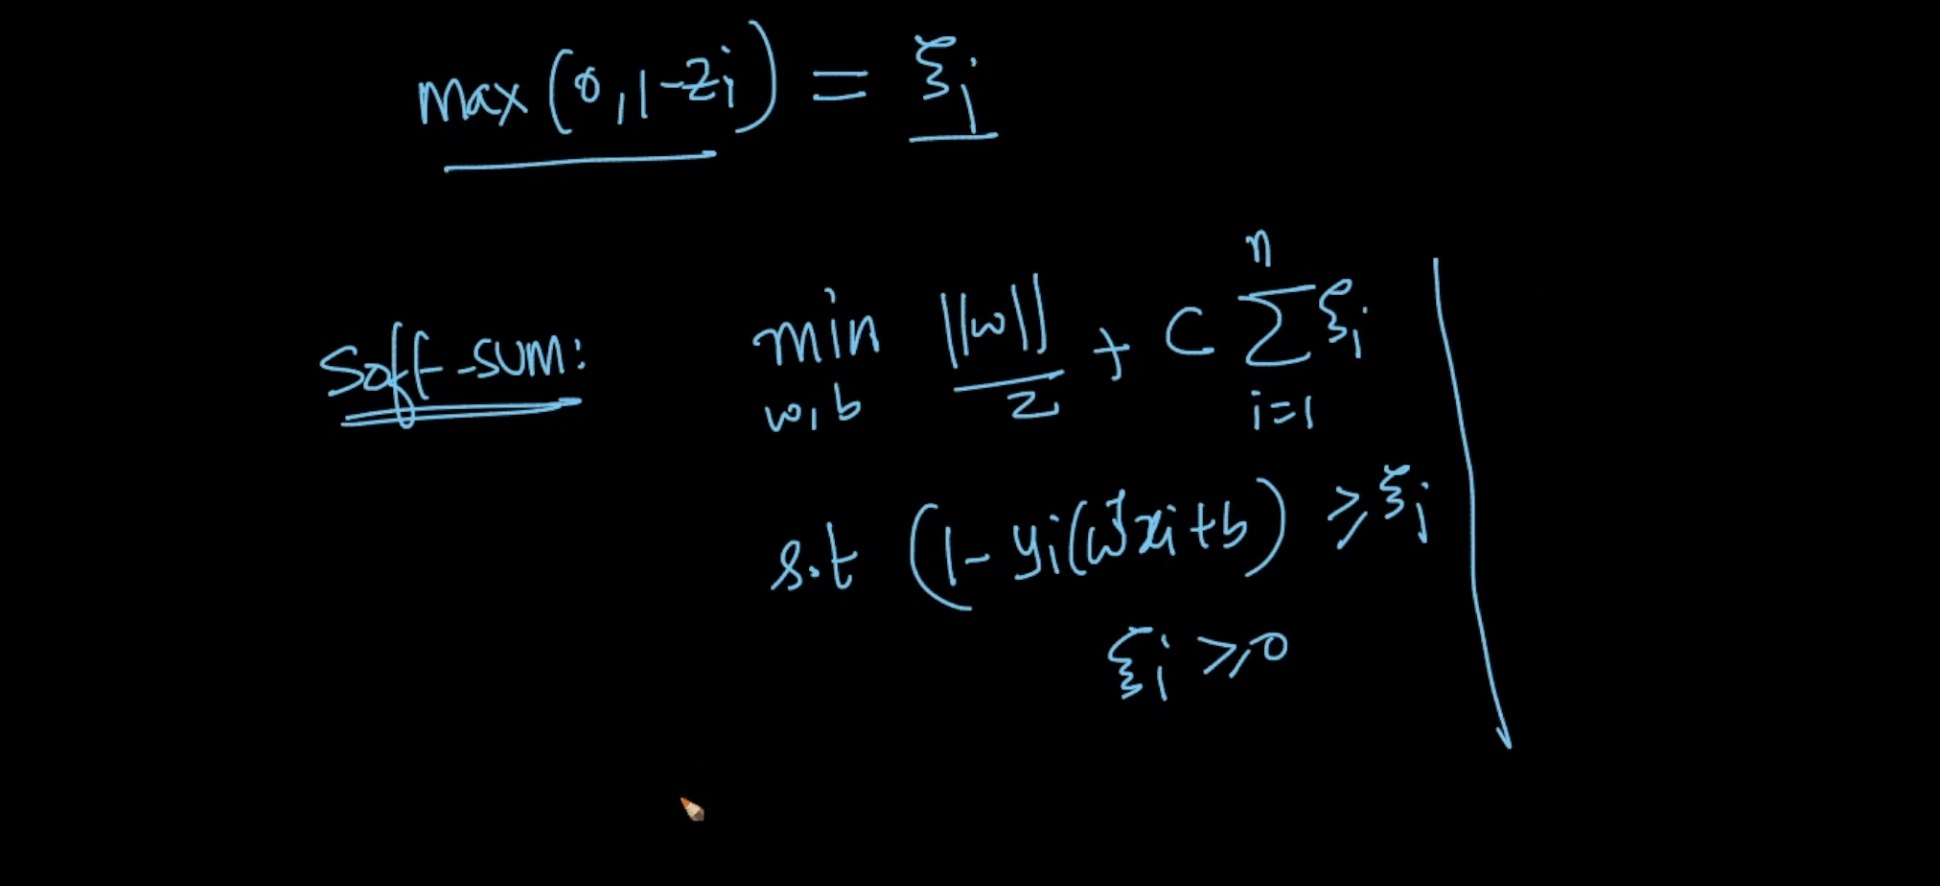 max(0,1-zi) = ξi
Soft-SVM: min w,b ||w||/2 + C n∑i=1 ξi
s.t (1- yi(wᵀxi+b) ≥ ξi
ξi ≥ 0